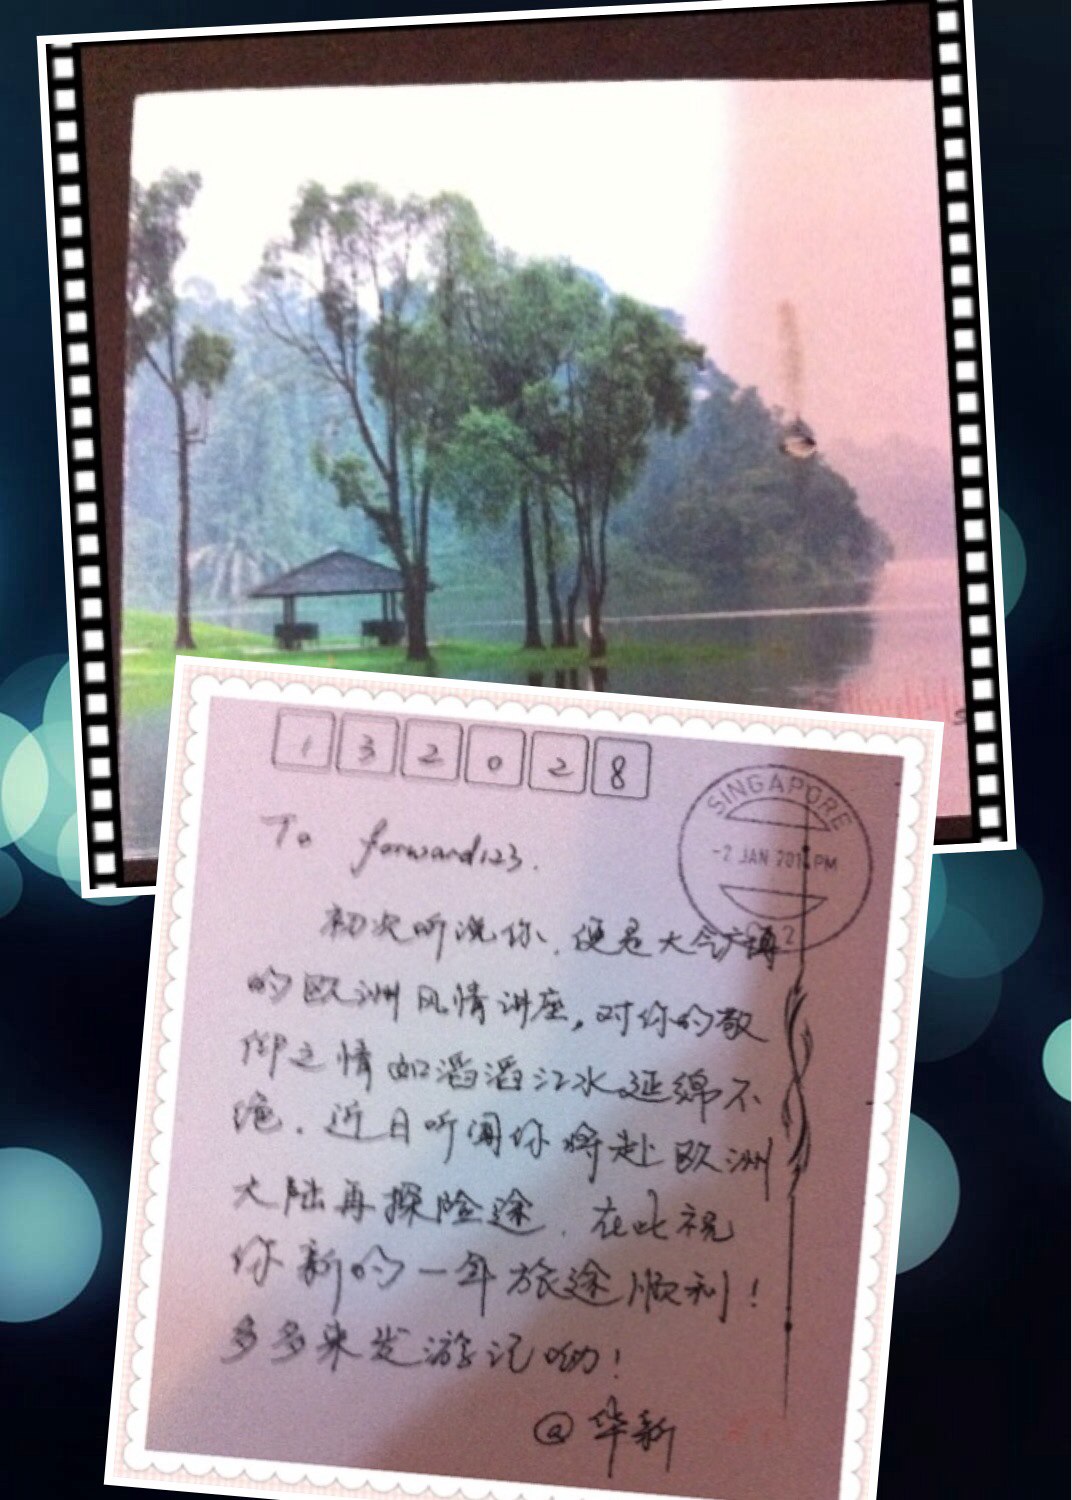 132028
SINGAPORE
-2 JAN 201 PM
To forward123.
初次听说你、便是大气广博
的欧洲风情讲座,对你的敬
仰之情如滔滔江水延绵不
绝.近日听闻你将赴欧洲
大陆再探险途.在此祝
你新的一年旅途顺利!
多多来发游记哟!
@华新